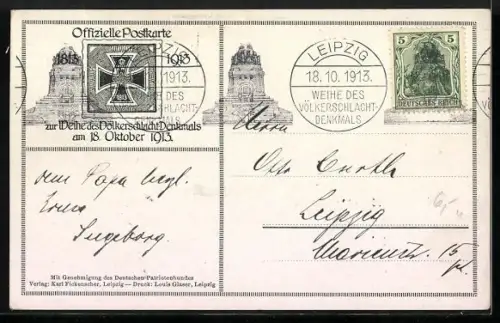 Offizielle Postkarte
1813 1913
zur Weihe des Völkerschlacht-Denkmals
am 18. Oktober 1913.
LEIPZIG
18.10.1913.
WEIHE DES
VÖLKERSCHLACHT-
DENKMALS
LEIPZIG
18.10.1913.
WEIHE DES
VÖLKERSCHLACHT-
DENKMALS
5 5
DEUTSCHES REICH
Herrn
Otto
Leipzig
15
Papa
Erna
Ingeborg.
6,-
Mit Genehmigung des Deutschen Patriotenbundes
Verlag: Karl Fickenscher, Leipzig — Druck: Louis Glaser, Leipzig